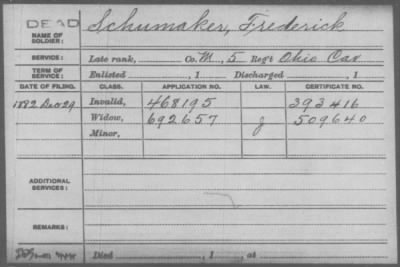 DEAD
NAME OF SOLDIER: Schumaker, Frederick
SERVICE: Late rank, Co. M, 5 Reg't Ohio Cav
TERM OF SERVICE: Enlisted , 1 Discharged , 1
DATE OF FILING. CLASS. APPLICATION NO. LAW. CERTIFICATE NO.
1882 Dec 29 Invalid, 468195 393416
Widow, 692657 J 509640
Minor,
ADDITIONAL SERVICES:
REMARKS:
Died , 1 , at